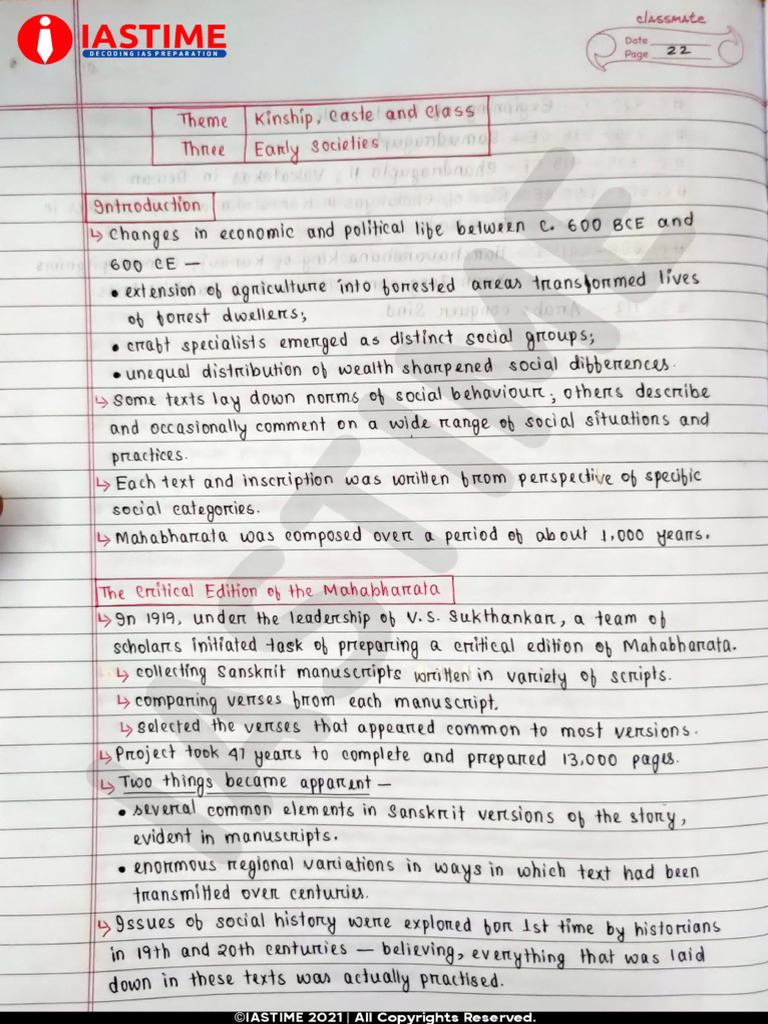 IASTIME
DECODING IAS PREPARATION
classmate
Date
Page 22
Theme Kinship, Caste and Class
Three Early Societies
Introduction
↳ Changes in economic and political life between C. 600 BCE and
600 CE —
• extension of agriculture into forested areas transformed lives
of forest dwellers;
• craft specialists emerged as distinct social groups;
• unequal distribution of wealth sharpened social differences.
↳ Some texts lay down norms of social behaviour; others describe
and occasionally comment on a wide range of social situations and
practices.
↳ Each text and inscription was written from perspective of specific
social categories.
↳ Mahabharata was composed over a period of about 1,000 years.
The Critical Edition of the Mahabharata
↳ In 1919, under the leadership of V. S. Sukthankar, a team of
scholars initiated task of preparing a critical edition of Mahabharata.
↳ collecting Sanskrit manuscripts written in variety of scripts.
↳ comparing verses from each manuscript.
↳ selected the verses that appeared common to most versions.
↳ Project took 47 years to complete and prepared 13,000 pages.
↳ Two things became apparent —
• several common elements in Sanskrit versions of the story,
evident in manuscripts.
• enormous regional variations in ways in which text had been
transmitted over centuries.
↳ Issues of social history were explored for 1st time by historians
in 19th and 20th centuries — believing, everything that was laid
down in these texts was actually practised.
IASTIME
©IASTIME 2021 | All Copyrights Reserved.